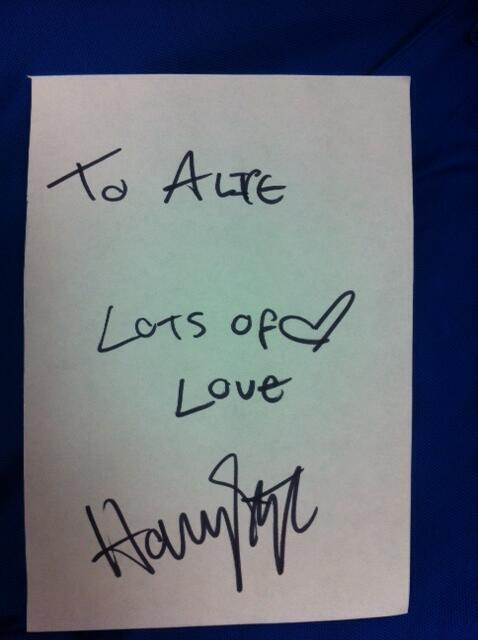 To ALTE
LOTS OF
LOVE
Harry Styl